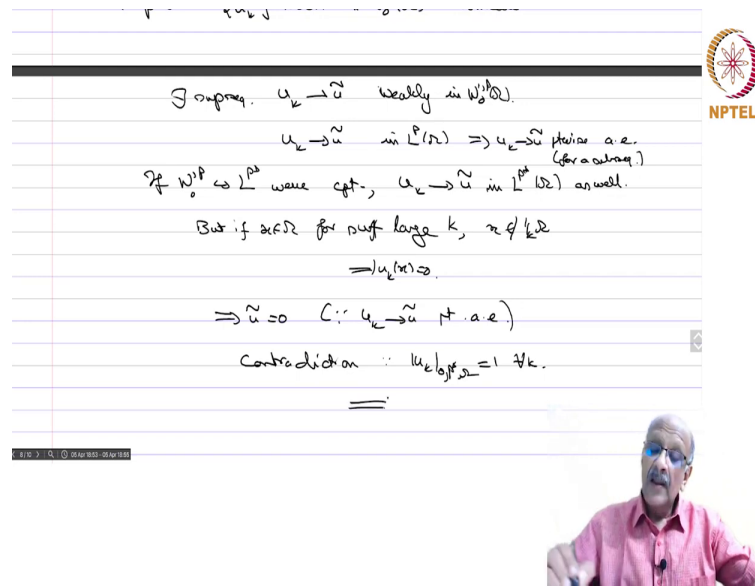 ∃ subseq. u_k → ũ weakly in W_0^{1,p}(Ω).
u_k → ũ in L^p(Ω) ⇒ u_k → ũ ptwise a.e.
(for a subseq.)
If W_0^{1,p} ↪ L^{p*} were cpt., u_k → ũ in L^{p*}(Ω) as well.
But if x∈Ω for suff large k, x ∉ 1/k Ω
⇒ u_k(x)=0.
⇒ ũ=0 (∵ u_k → ũ pt. a.e.)
Contradiction ∵ |u_k|_{0,p*,Ω} = 1 ∀k.
NPTEL
8/10
05 Apr 18:53 - 05 Apr 18:55